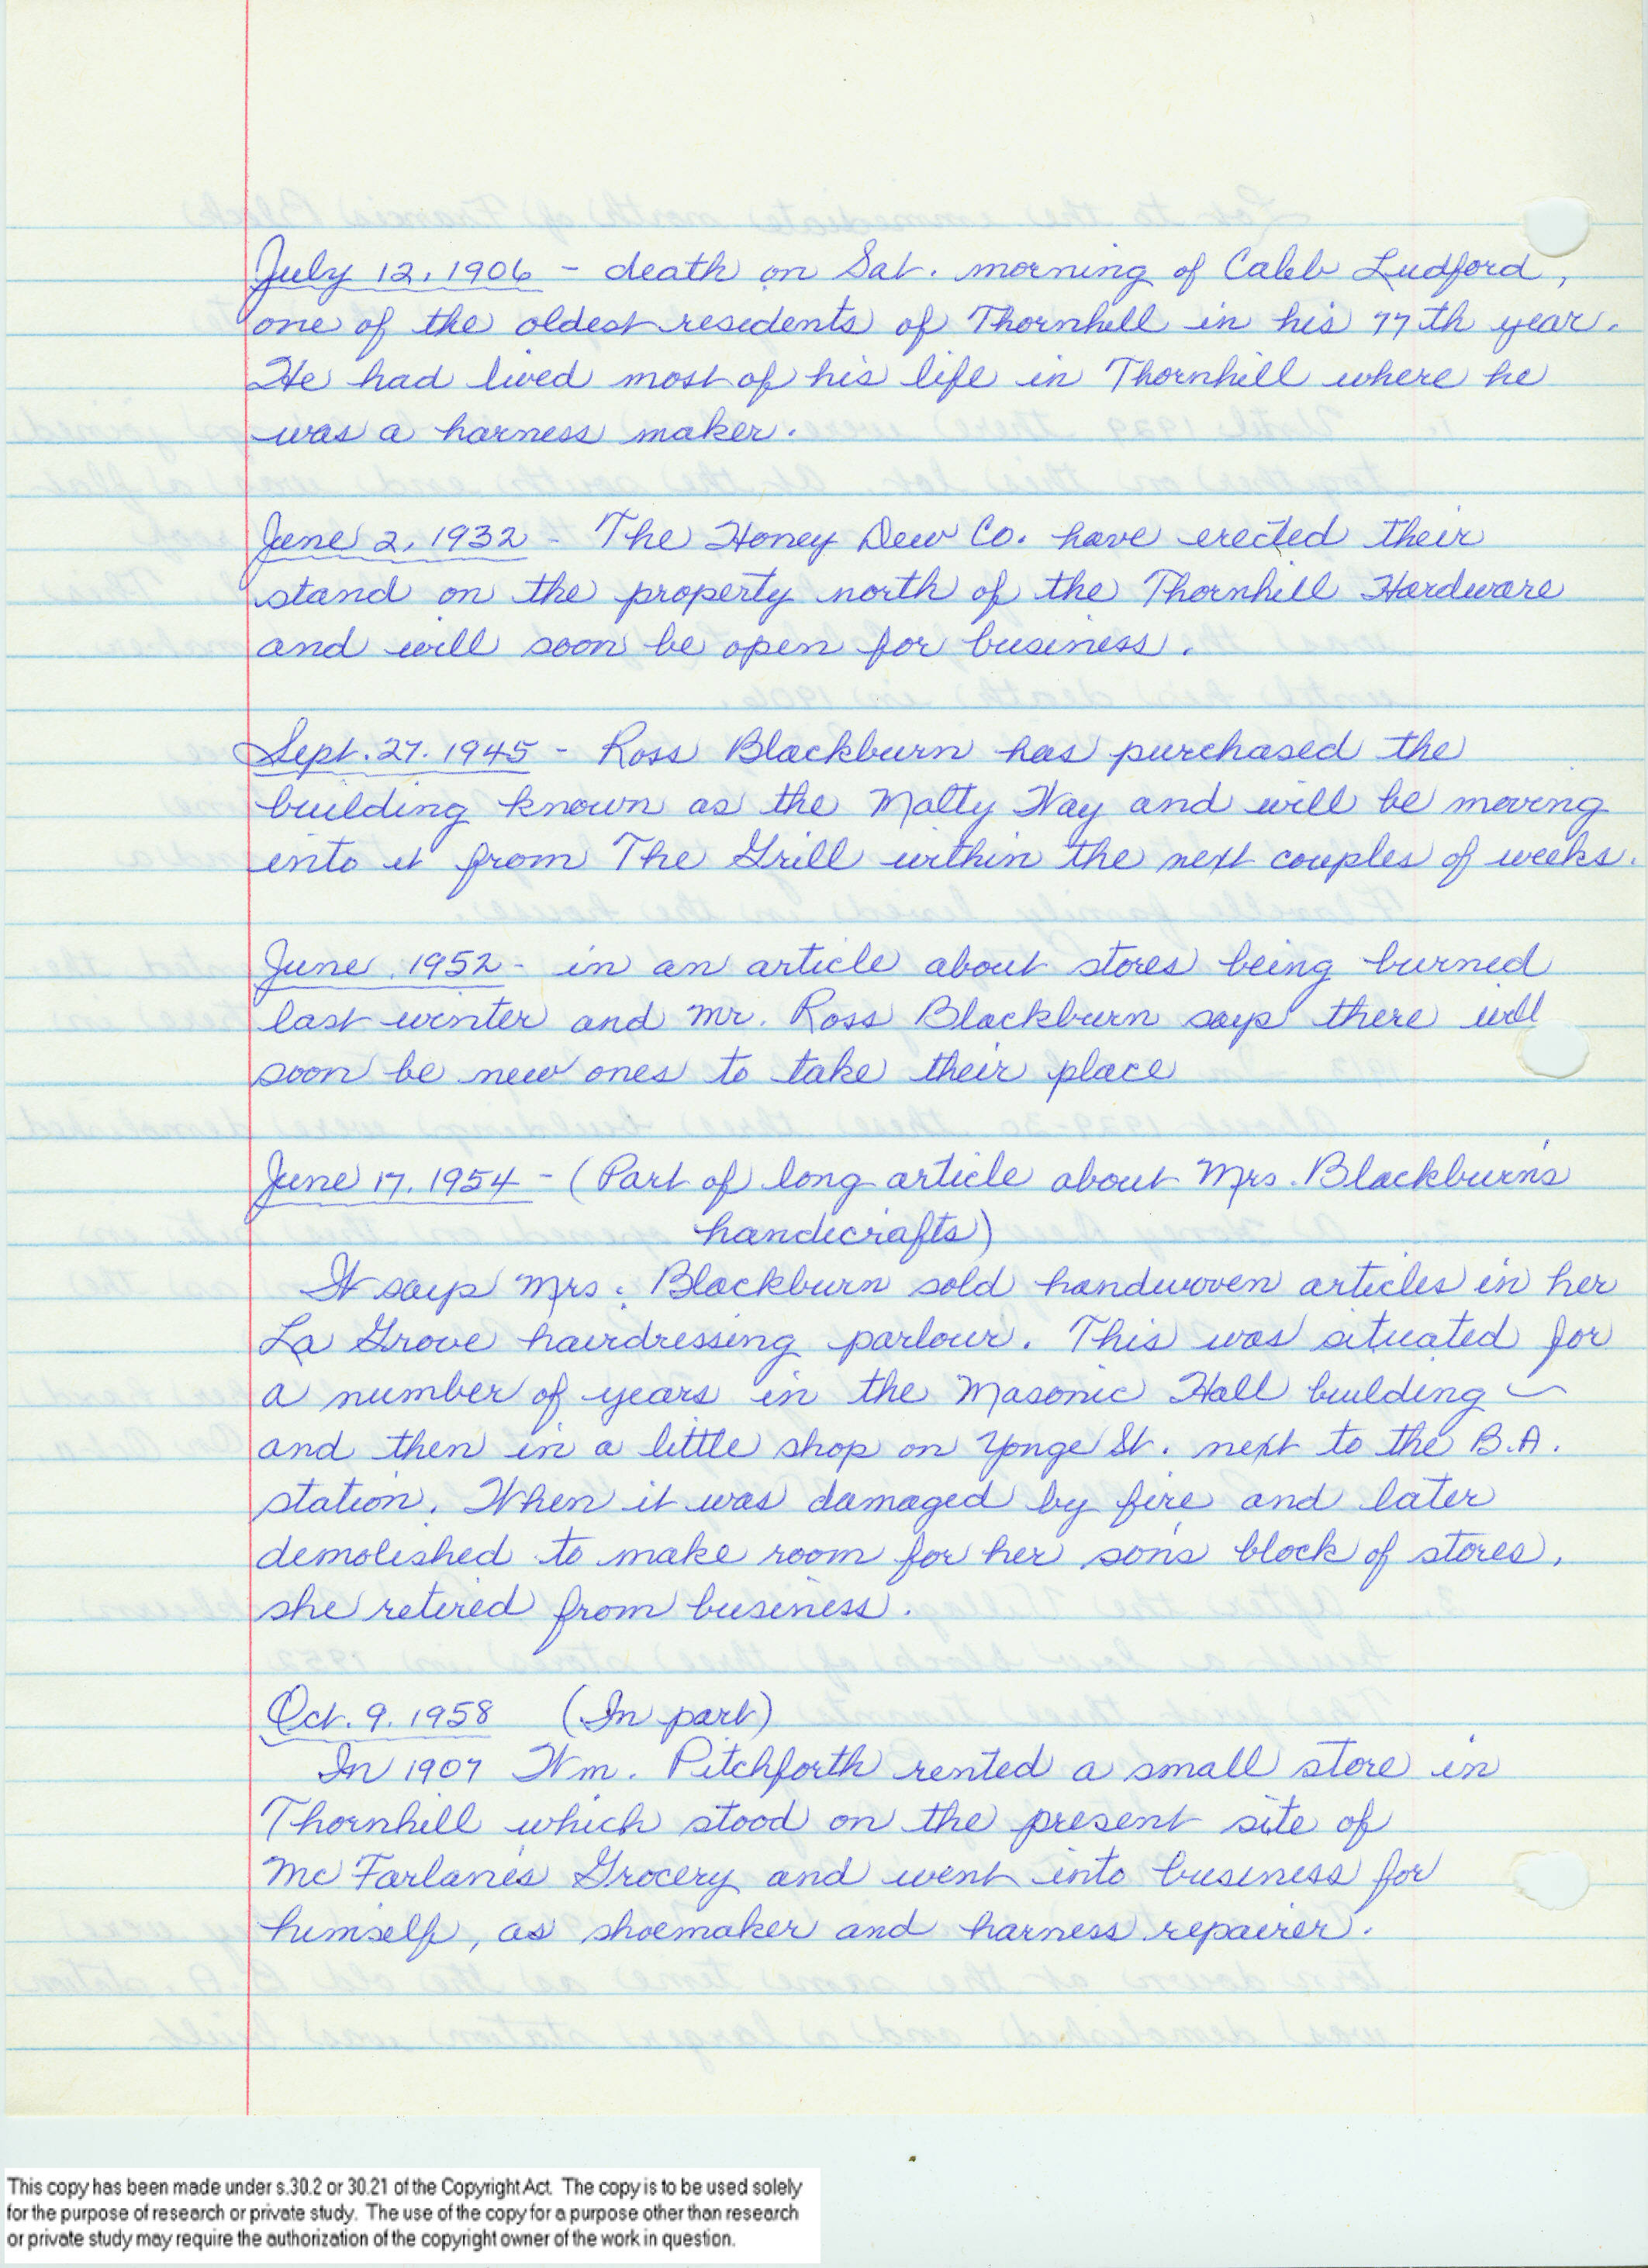 July 12, 1906 - death on Sat. morning of Caleb Ludford,
one of the oldest residents of Thornhill in his 77th year.
He had lived most of his life in Thornhill where he
was a harness maker.
June 2, 1932 - The Honey Dew Co. have erected their
stand on the property north of the Thornhill Hardware
and will soon be open for business.
Sept. 27. 1945 - Ross Blackburn has purchased the
building known as the Malty Way and will be moving
into it from The Grill within the next couples of weeks.
June, 1952 - in an article about stores being burned
last winter and Mr. Ross Blackburn says there will
soon be new ones to take their place
June 17, 1954 - (Part of long article about Mrs. Blackburn's
handicrafts)
It says Mrs. Blackburn sold handwoven articles in her
La Grove hairdressing parlour. This was situated for
a number of years in the Masonic Hall building -
and then in a little shop on Yonge St. next to the B.A.
station. When it was damaged by fire and later
demolished to make room for her son's block of stores,
she retired from business.
Oct. 9. 1958 (In part)
In 1907 Wm. Pitchforth rented a small store in
Thornhill which stood on the present site of
McFarlane's Grocery and went into business for
himself, as shoemaker and harness repairer.
This copy has been made under s.30.2 or 30.21 of the Copyright Act. The copy is to be used solely
for the purpose of research or private study. The use of the copy for a purpose other than research
or private study may require the authorization of the copyright owner of the work in question.